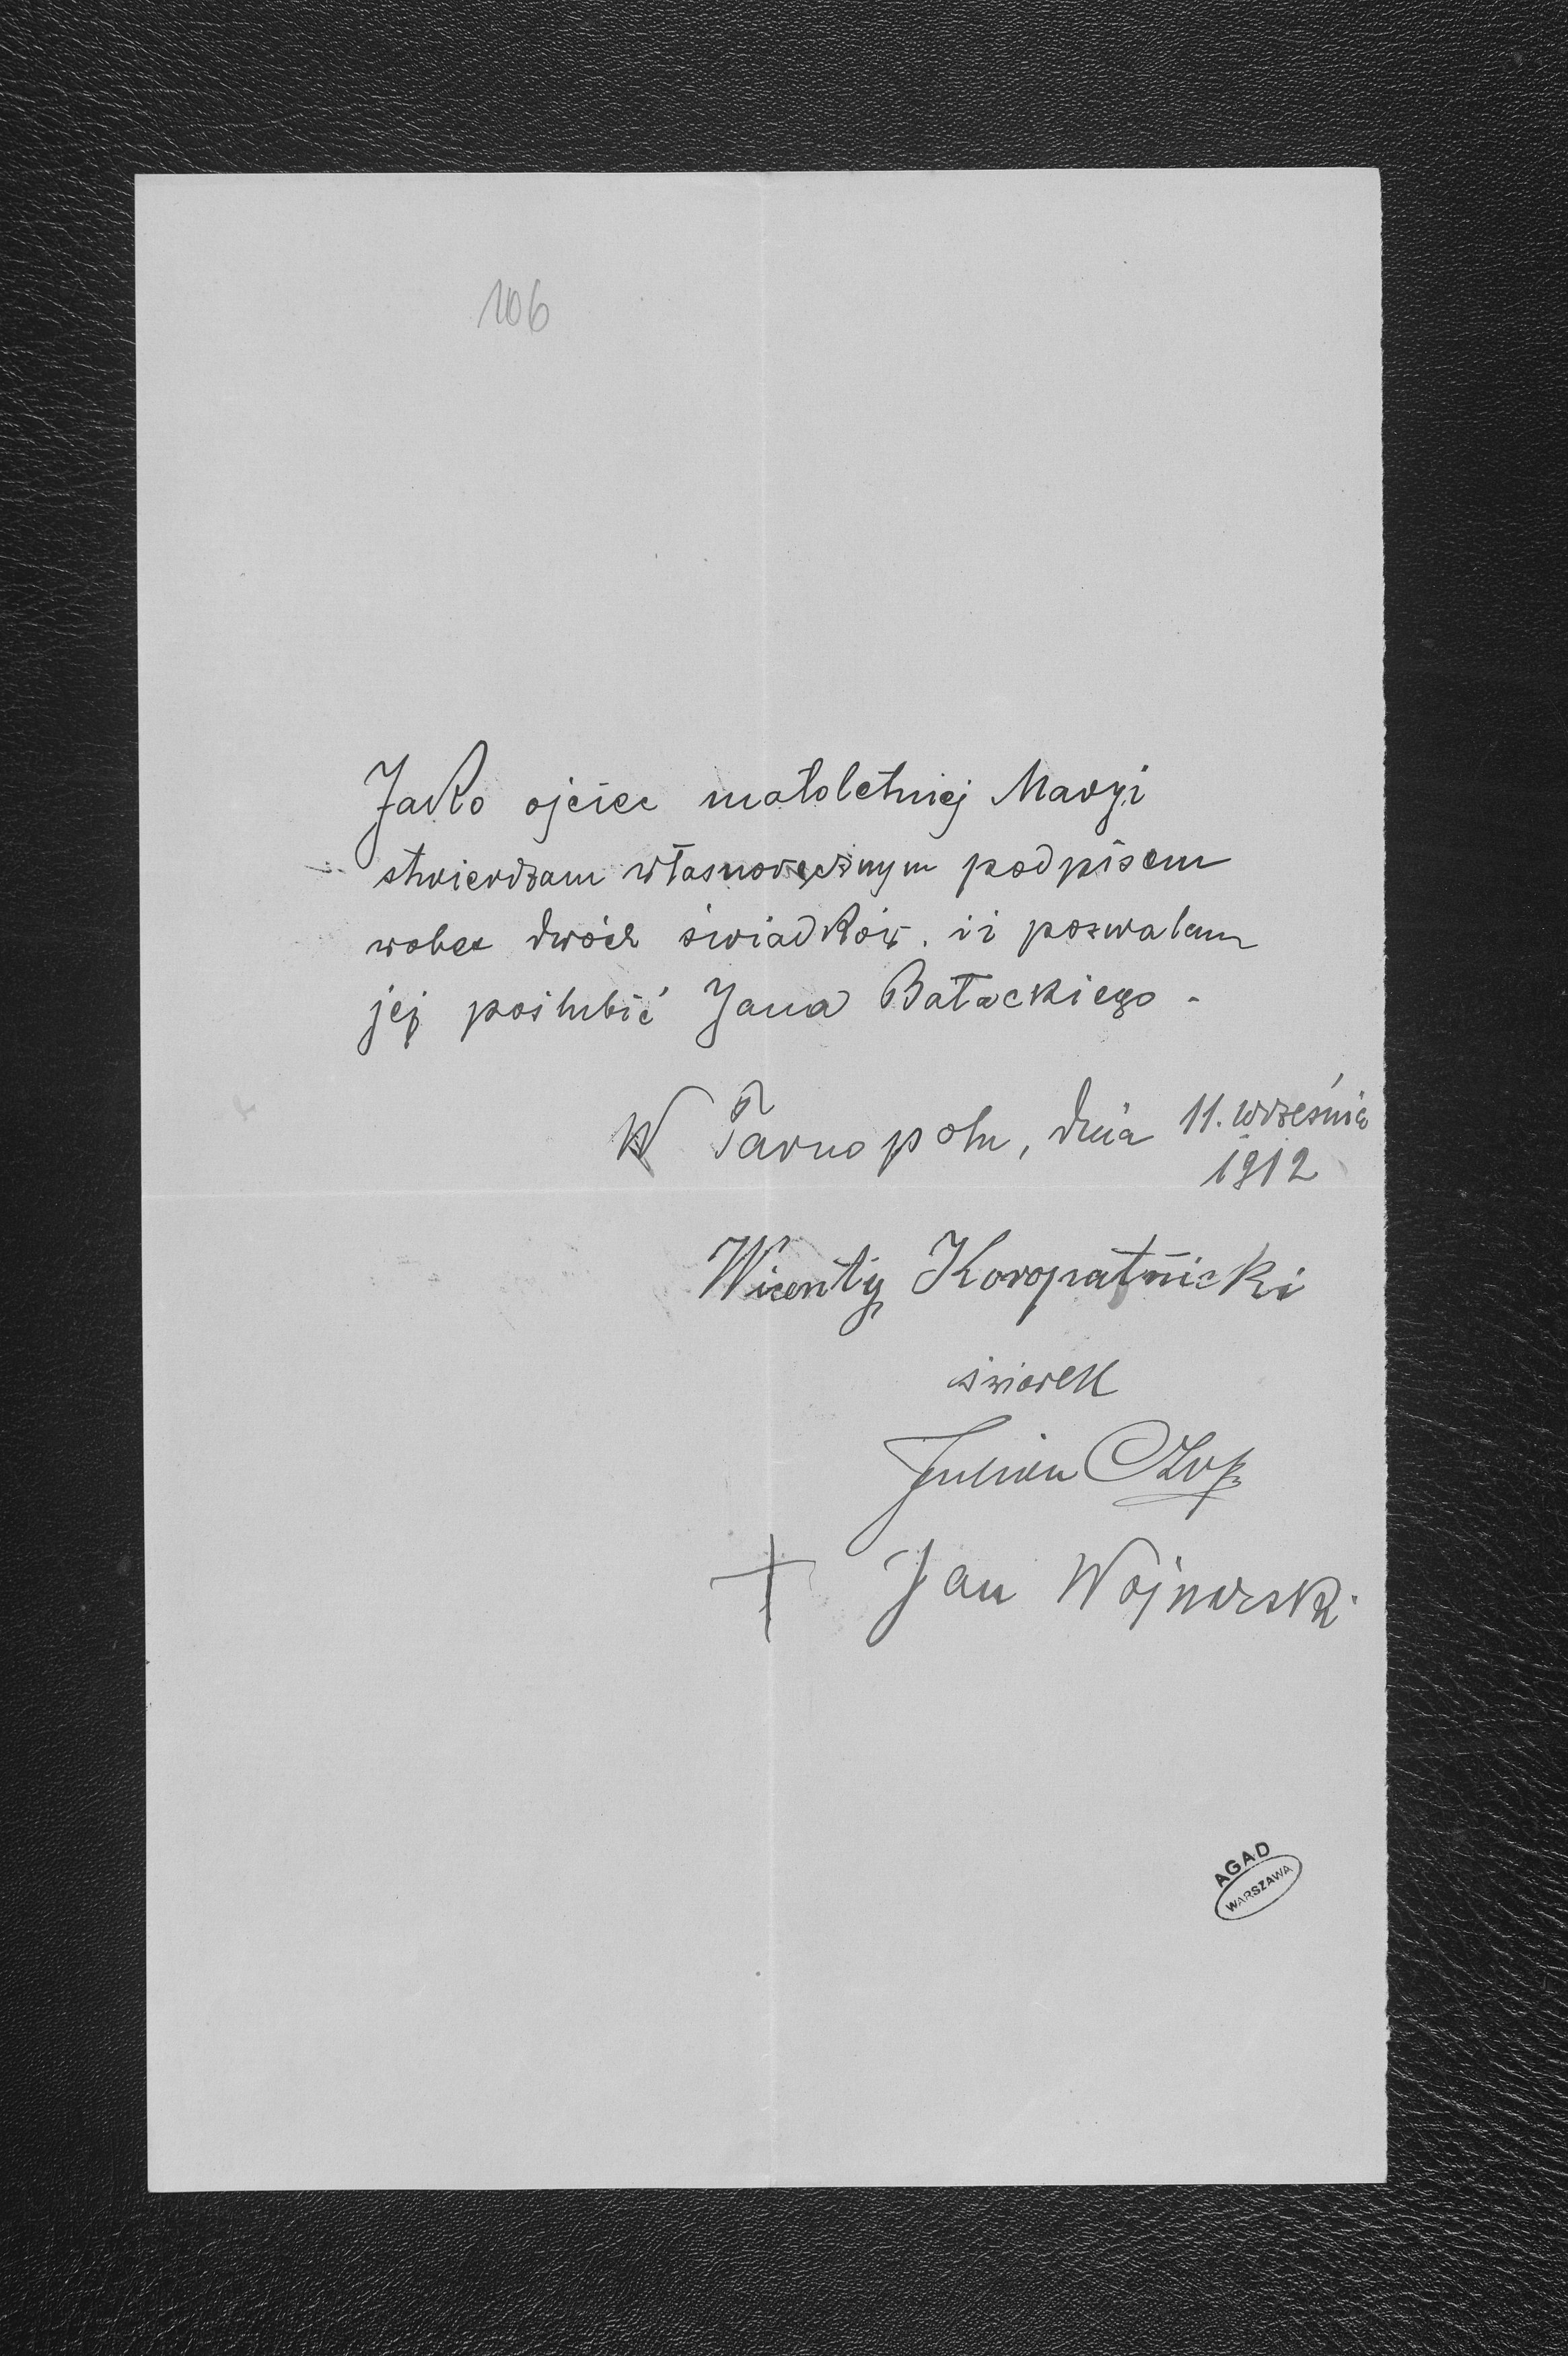 106
Jako ojciec małoletniej Maryi
stwierdzam własnoręcznym podpisem
wobec dwóch świadków. iż pozwalam
jej poślubić Jana Bałackiego.
W Tarnopolu, dnia 11. września
1912
Wicenty Koropatnicki
świadek
Julian Czop
+ Jan Wojnarski
AGAD
WARSZAWA